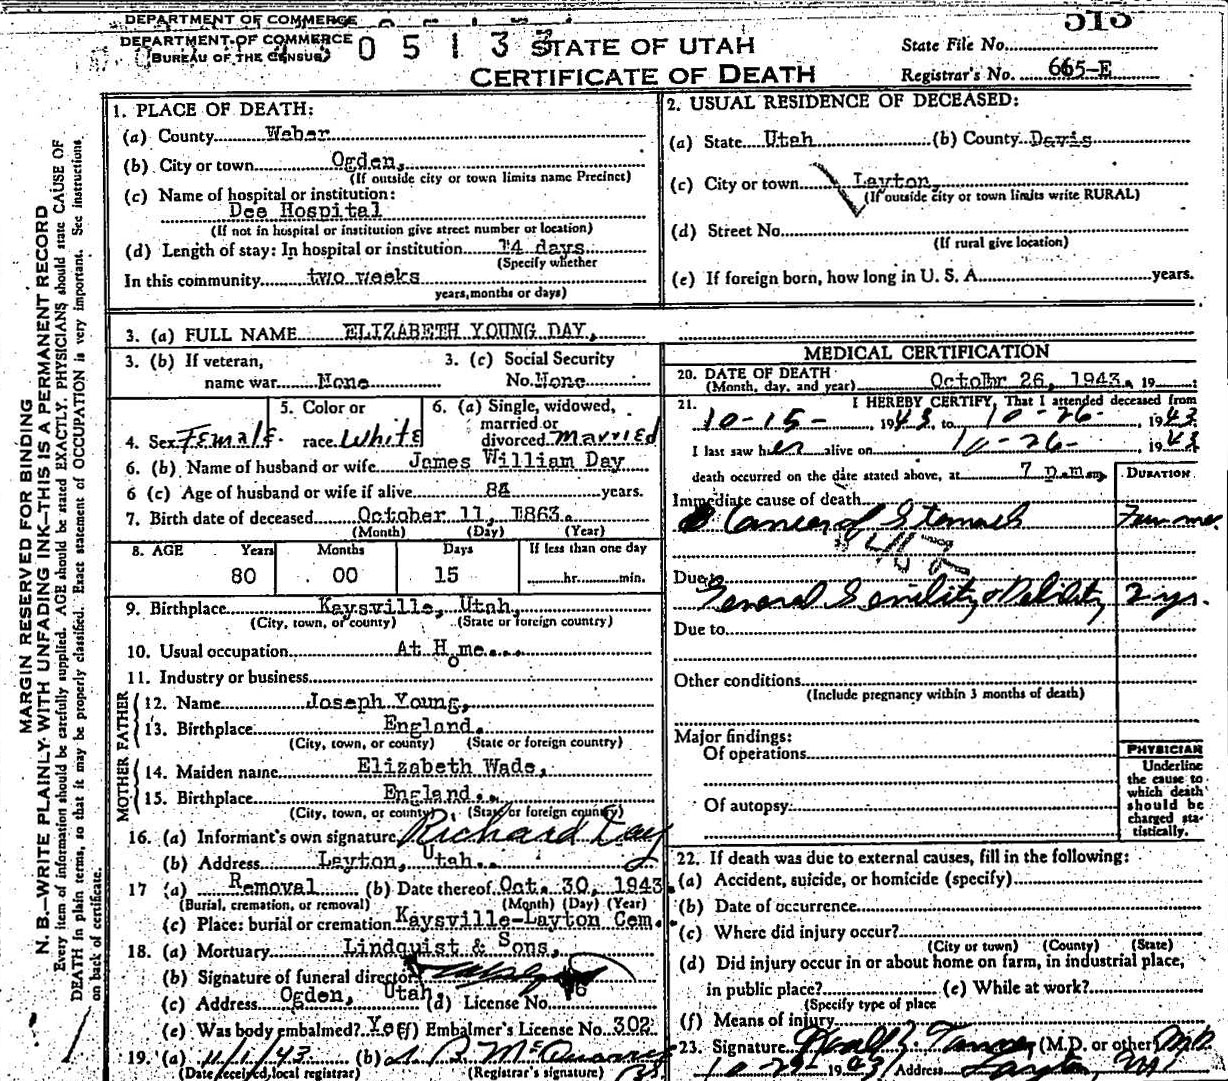 DEPARTMENT OF COMMERCE
DEPARTMENT OF COMMERCE
(BUREAU OF THE CENSUS)
0 5 1 3 3
STATE OF UTAH
CERTIFICATE OF DEATH
513
State File No.
Registrar's No. 665-E
MARGIN RESERVED FOR BINDING
N. B.—WRITE PLAINLY WITH UNFADING INK—THIS IS A PERMANENT RECORD
Every item of information should be carefully supplied. AGE should be stated EXACTLY. PHYSICIANS should state CAUSE OF
DEATH in plain terms, so that it may be properly classified. Exact statement of OCCUPATION is very important. See instructions
on back of certificate.
1. PLACE OF DEATH:
(a) County Weber
(b) City or town Ogden,
(If outside city or town limits name Precinct)
(c) Name of hospital or institution:
Dee Hospital
(If not in hospital or institution give street number or location)
(d) Length of stay: In hospital or institution 14 days
(Specify whether
In this community two weeks
years, months or days)
2. USUAL RESIDENCE OF DECEASED:
(a) State Utah (b) County Davis
(c) City or town Layton,
(If outside city or town limits write RURAL)
(d) Street No.
(If rural give location)
(e) If foreign born, how long in U. S. A. years.
3. (a) FULL NAME ELIZABETH YOUNG DAY,
3. (b) If veteran, 3. (c) Social Security
name war None No. None
4. Sex Female 5. Color or race White 6. (a) Single, widowed, married or divorced Married
6. (b) Name of husband or wife James William Day
6 (c) Age of husband or wife if alive 84 years.
7. Birth date of deceased October 11, 1863.
(Month) (Day) (Year)
8. AGE Years Months Days If less than one day
80 00 15 hr. min.
9. Birthplace Kaysville, Utah,
(City, town, or county) (State or foreign country)
10. Usual occupation At Home...
11. Industry or business
FATHER
12. Name Joseph Young,
13. Birthplace England.
(City, town, or county) (State or foreign country)
MOTHER
14. Maiden name Elizabeth Wade,
15. Birthplace England..
(City, town, or county) (State or foreign country)
16. (a) Informant's own signature Richard Day
(b) Address Layton, Utah..
17 (a) Removal (b) Date thereof Oct. 30, 1943.
(Burial, cremation, or removal) (Month) (Day) (Year)
(c) Place: burial or cremation Kaysville-Layton Cem.
18. (a) Mortuary Lindquist & Sons,
(b) Signature of funeral director
(c) Address Ogden, Utah. (d) License No. 76
(e) Was body embalmed? Yes (f) Embalmer's License No. 302
19. (a) 11/1/43 (b)
(Date received local registrar) (Registrar's signature)
MEDICAL CERTIFICATION
20. DATE OF DEATH
(Month, day, and year) October 26, 1943. 19
21. I HEREBY CERTIFY, That I attended deceased from
10-15- 1943, to 10-26- 1943.
I last saw her alive on 10-26- 1943
death occurred on the date stated above, at 7 p.m.m. DURATION
Immediate cause of death
Cancer of Stomach
Due to
General Senility & Debility 2 yrs.
Due to
Other conditions
(Include pregnancy within 3 months of death)
Major findings:
Of operations
Of autopsy
PHYSICIAN
Underline
the cause to
which death
should be
charged sta-
tistically.
22. If death was due to external causes, fill in the following:
(a) Accident, suicide, or homicide (specify)
(b) Date of occurrence
(c) Where did injury occur?
(City or town) (County) (State)
(d) Did injury occur in or about home on farm, in industrial place,
in public place? (e) While at work?
(Specify type of place
(f) Means of injury
23. Signature Tanner (M.D. or other) MD
10-29-1943 Address Layton, Ut